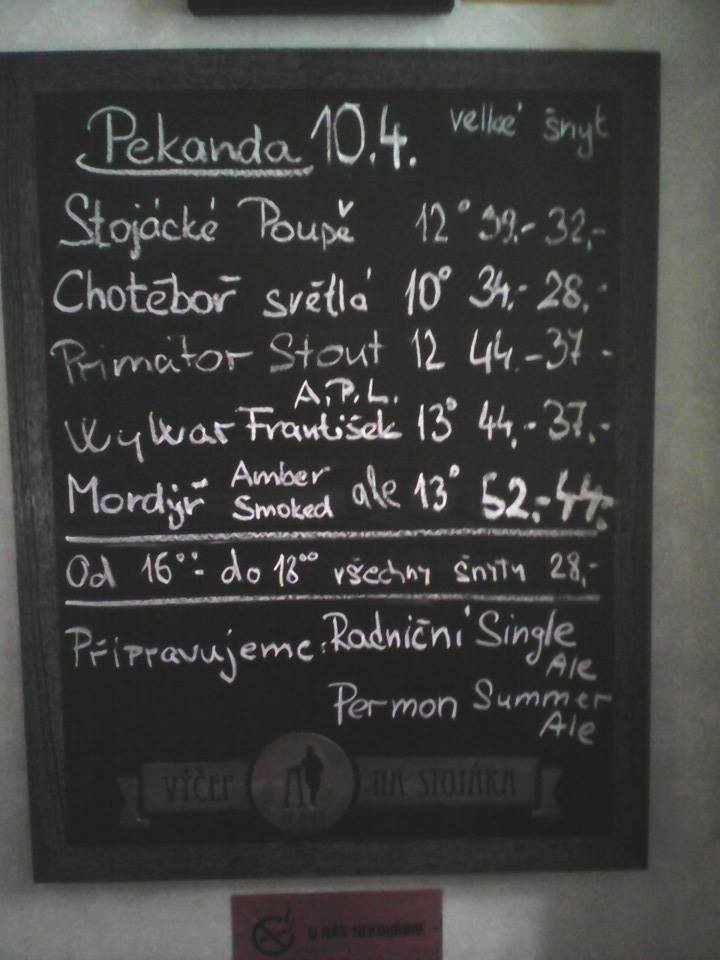 Pekanda 10.4. velké šnyt
Stojácké Poupě 12° 39.- 32,-
Chotěboř světlá 10° 34,- 28,-
Primátor Stout 12 44.- 37.-
A.P.L.
Wylwar František 13° 44,- 37,-
Mordýř Amber Smoked ale 13° 52.- 44.-
Od 16°°- do 18°° všechny šnyty 28,-
Připravujeme: Radniční Single
Ale
Permon Summer
Ale
VÝČEP NA STOJÁKA
U NÁS NEKOUŘÍME